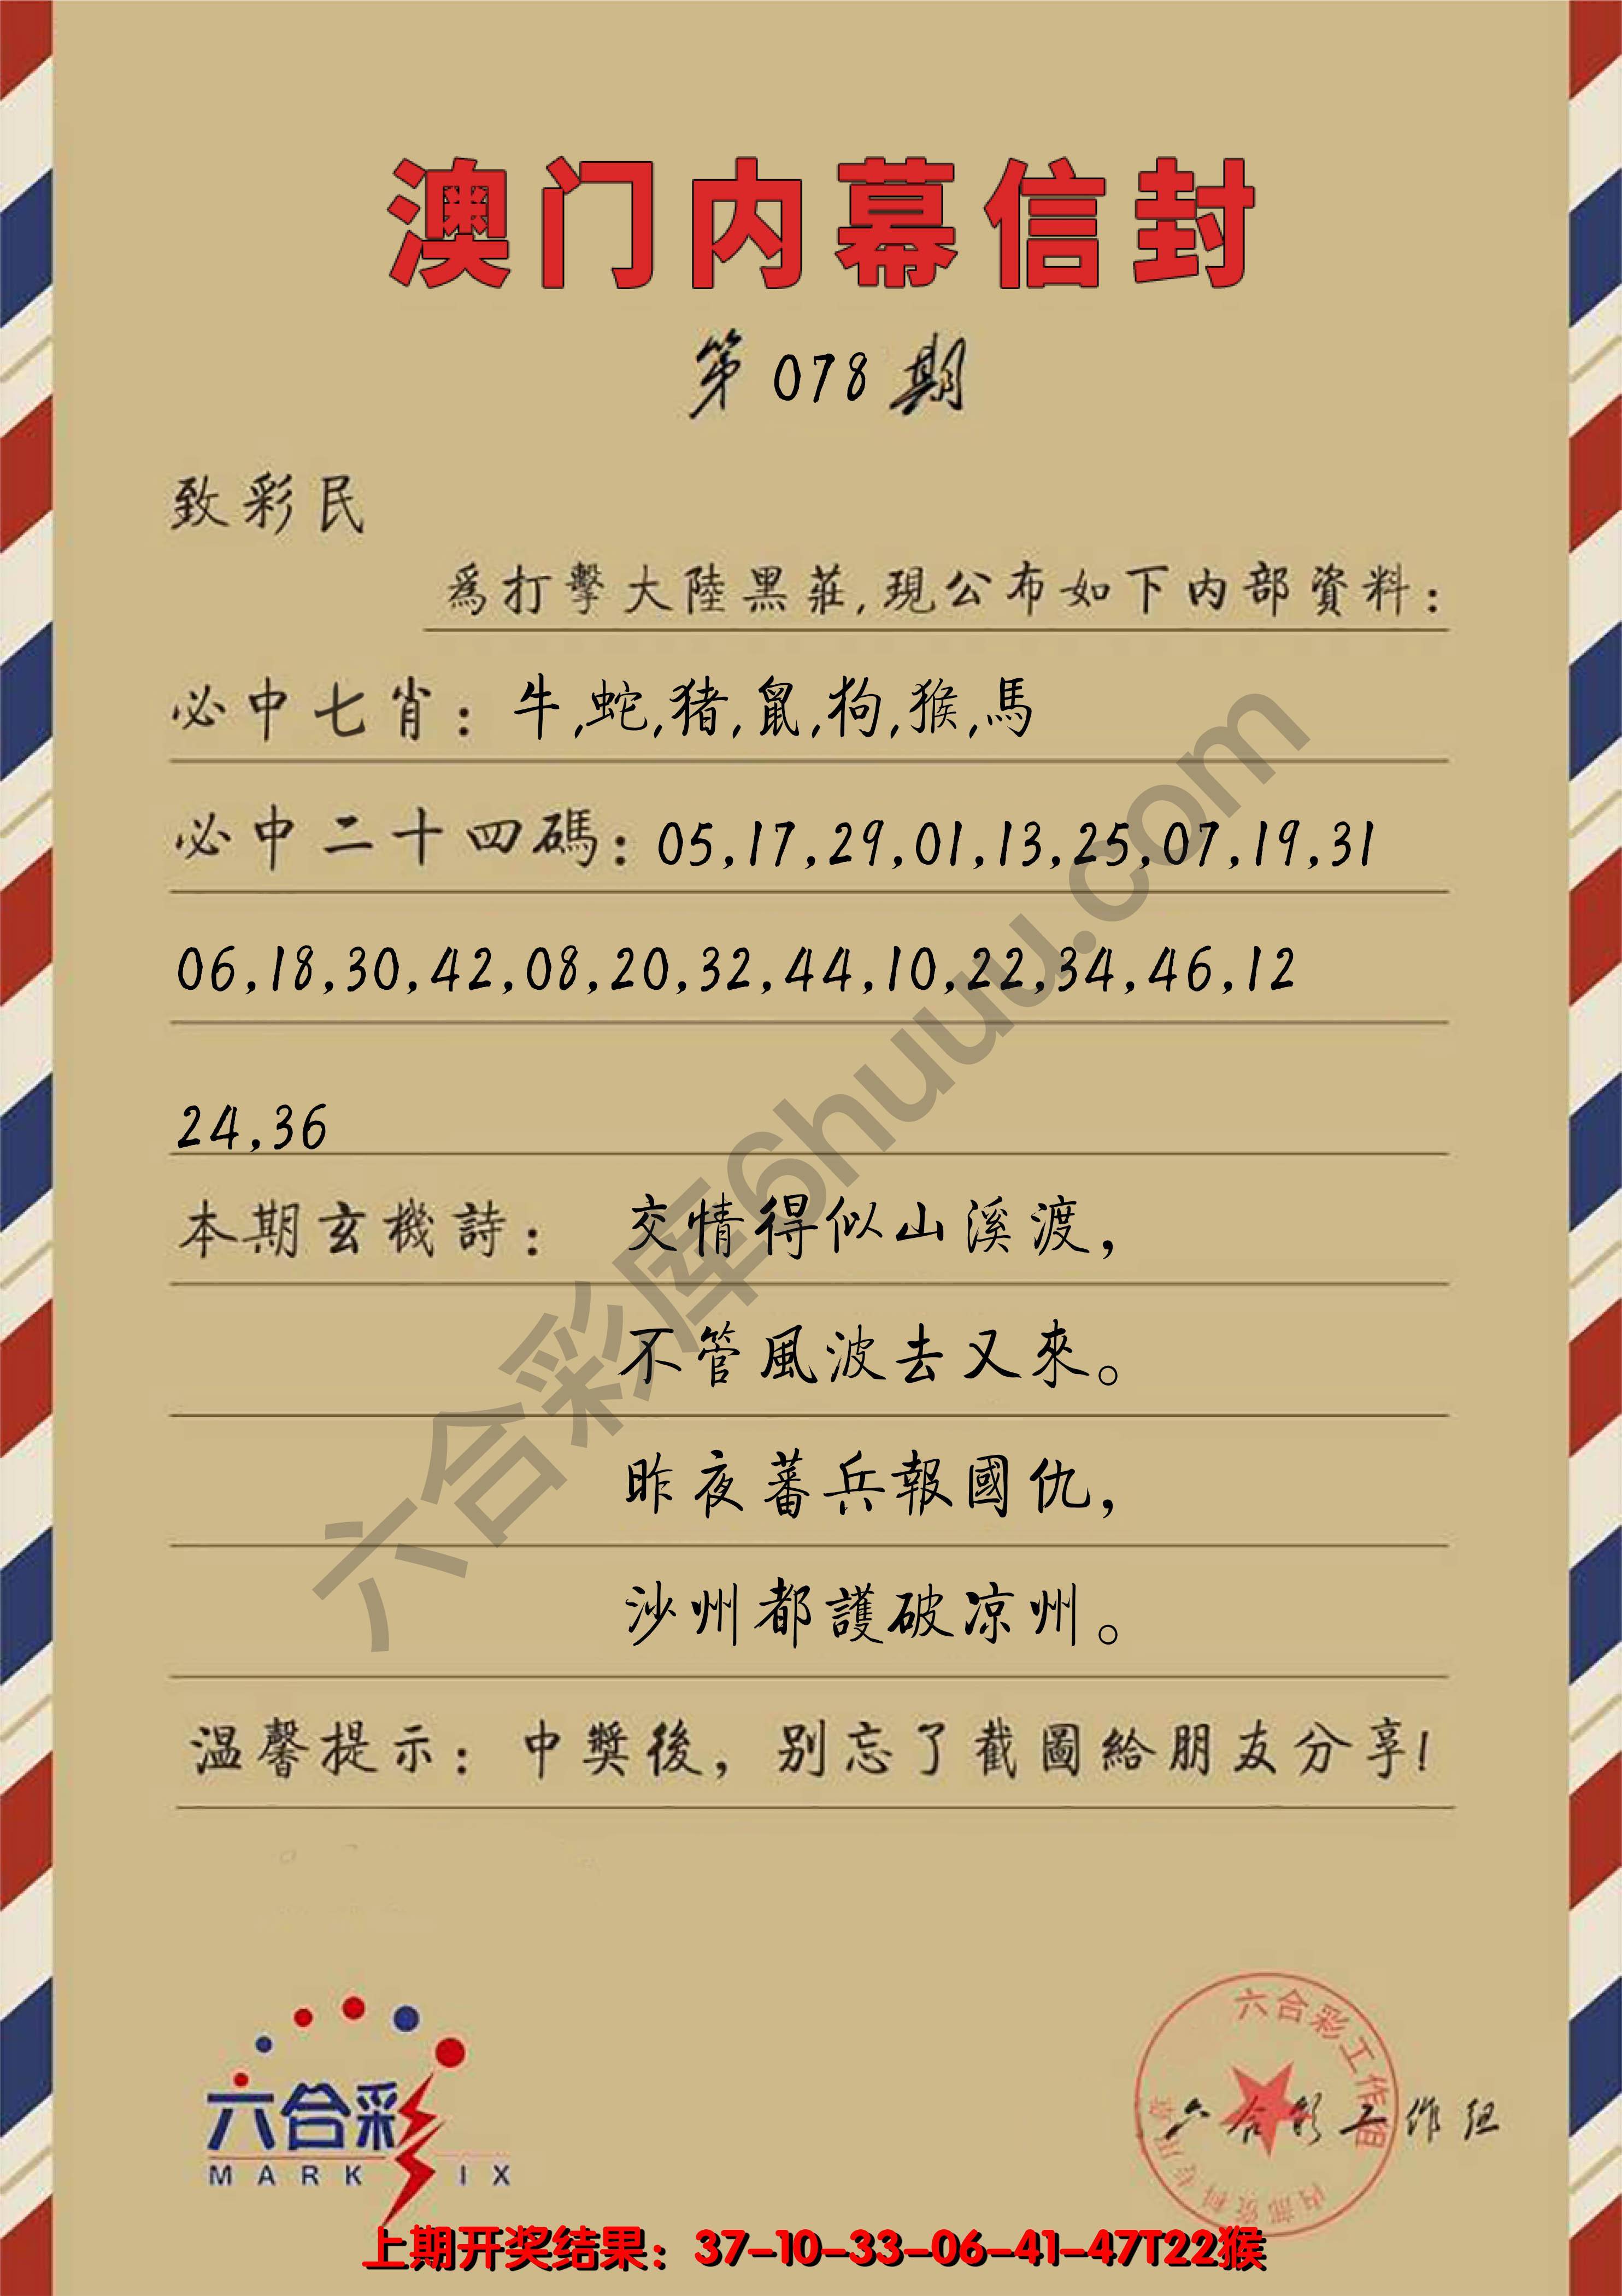 澳门内幕信封
第078期
致彩民
為打擊大陸黑莊,現公布如下内部資料:
必中七肖: 牛,蛇,猪,鼠,狗,猴,馬
必中二十四碼: 05,17,29,01,13,25,07,19,31
06,18,30,42,08,20,32,44,10,22,34,46,12
24,36
本期玄機詩: 交情得似山溪渡,
不管風波去又來。
昨夜蕃兵報國仇,
沙州都護破凉州。
温馨提示: 中獎後, 别忘了截圖給朋友分享!
六合彩库6huuu.com
六合彩
MARK IX
六合彩工作组
内部资料专用章
六合彩工作组
上期开奖结果: 37-10-33-06-41-47T22猴